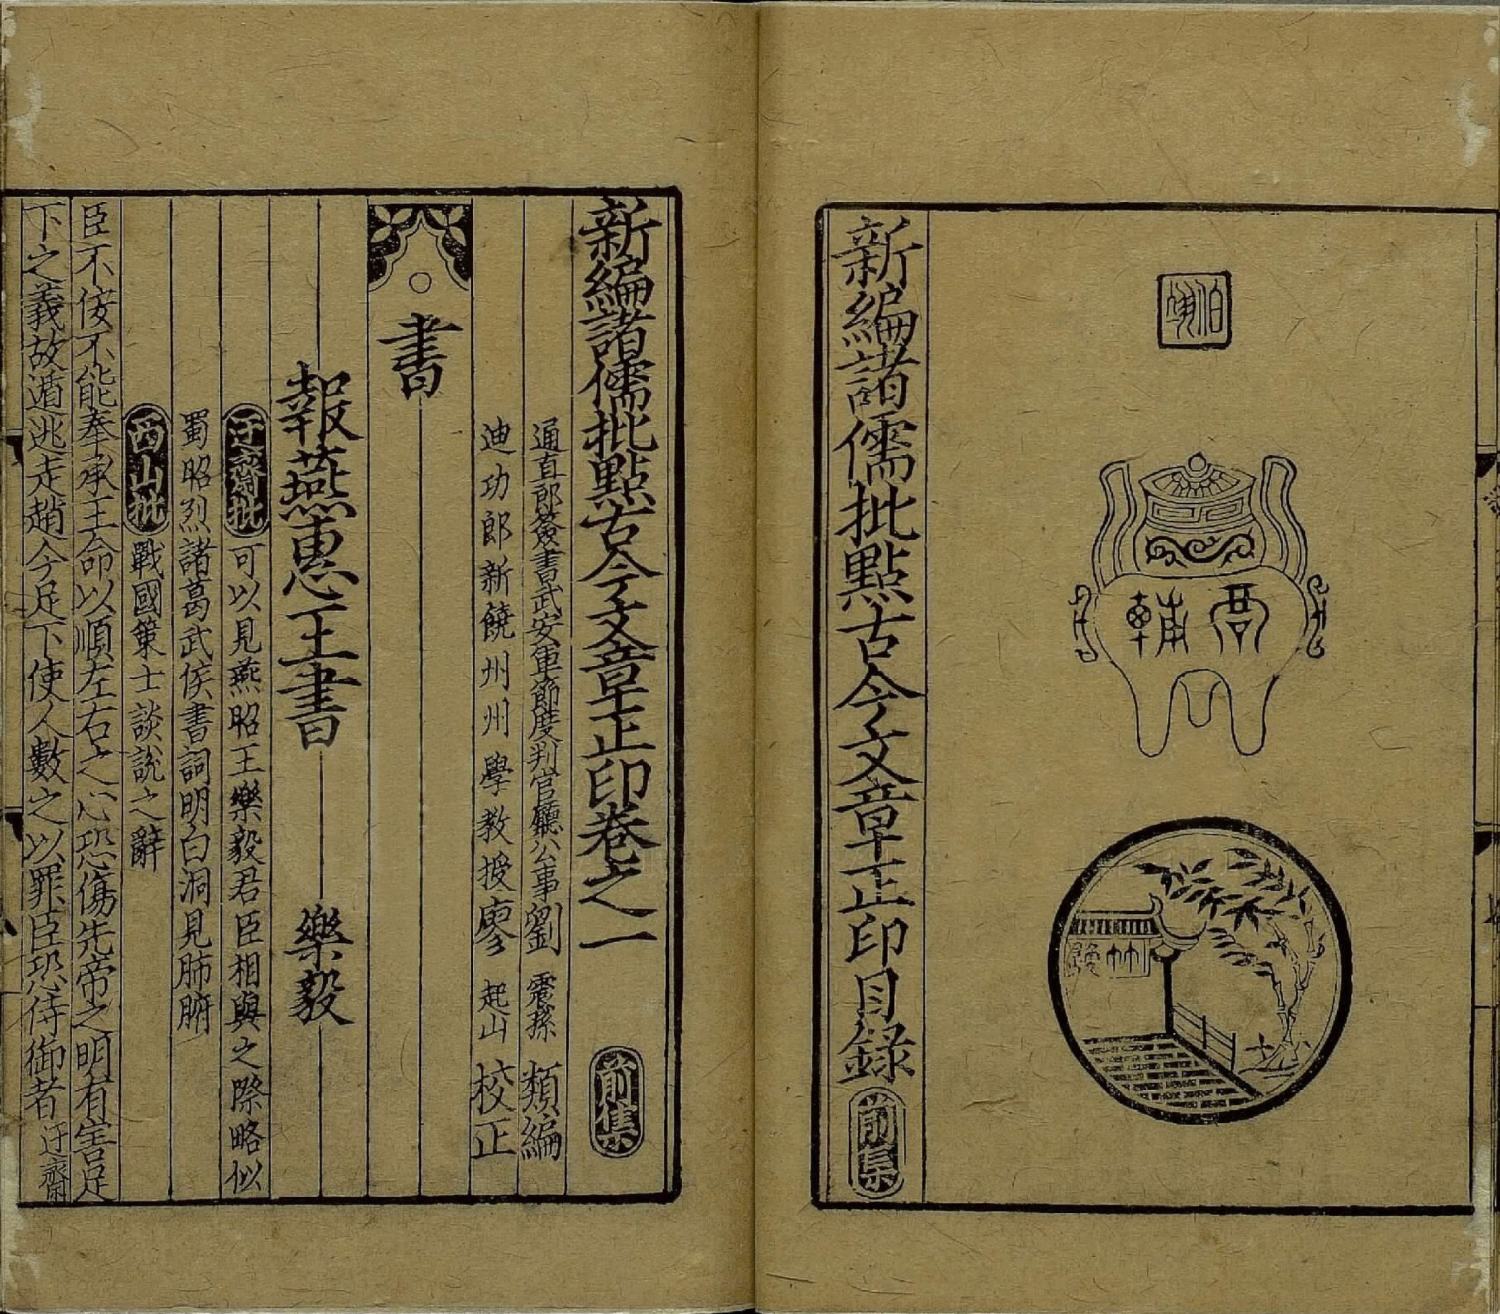 伯
輔
竹
新編諸儒批點古今文章正印目録 前集
新編諸儒批點古今文章正印卷之一 前集
通直郎簽書武安軍節度判官廳公事劉 震孫 類編
迪功郎新饒州州學教授廖 起山 校正
書
報燕惠王書 樂毅
迂齋批 可以見燕昭王樂毅君臣相與之際略似
蜀昭烈諸葛武侯書詞明白洞見肺腑
西山批 戰國策士談說之辭
臣不佞不能奉承王命以順左右之心恐傷先帝之明有害足
下之義故遁逃走趙今足下使人數之以罪臣恐侍御者 迂齋